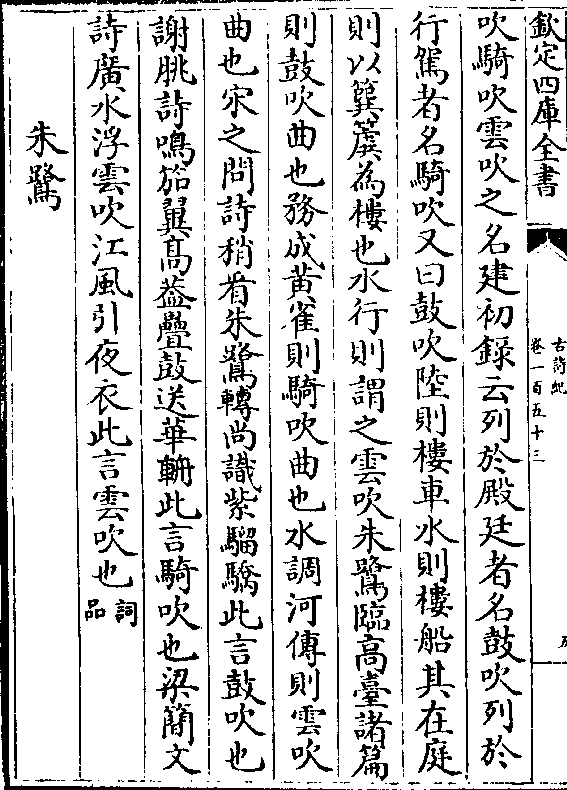 欽定四庫全書
古詩紀
卷一百五十三
五
吹騎吹雲吹之名建初録云列於殿廷者名鼓吹列於
行駕者名騎吹又曰鼓吹陸則樓車水則樓船其在庭
則以簨簴為樓也水行則謂之雲吹朱鷺臨高臺諸篇
則鼓吹曲也務成黄雀則騎吹曲也水調河傳則雲吹
曲也宋之問詩稍看朱鷺轉尚識紫騮驕此言鼓吹也
謝朓詩鳴笳翼高葢疊鼓送華輈此言騎吹也梁簡文
詩廣水浮雲吹江風引夜衣此言雲吹也詞品
朱鷺